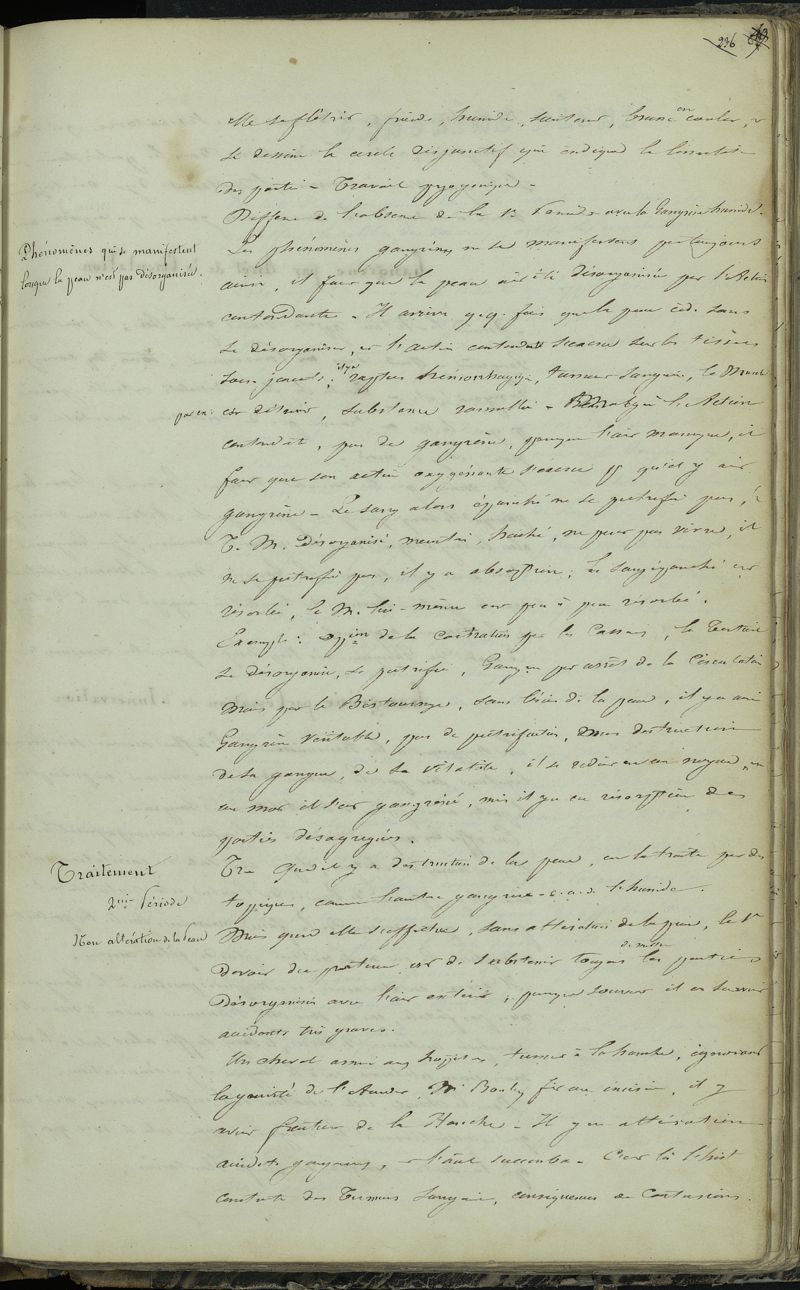 236
elle se flétrit, froide, humide, suintant, brune en couleur, &
se dessine le cercle disjonctif qui indique la limitation
des parties - Travail pyogénique -
Diffère de l'absence de la 1re Période avec la Gangrène humide.
Phénomènes qui se manifestent
lorsque la peau n'est pas désorganisée.
Les phénomènes gangréneux ne se manifestent pas toujours
ainsi, il faut que la peau ait été désorganisée par l'action
contondante - Il arrive q.q. fois que la peau cède sans
se désorganiser, et l'action contondante s'exerce sur les tissus
sous jacents; il y a rupture hémorrhagique, tumeur sanguine, le Muscle
par ex:
est détruit, substance ramollie - Malgré l'Action
contondante, pas de gangrène, parce que l'air manque, il
faut que son action oxygénante s'exerce pr qu'il y ait
gangrène - Le sang alors épanché ne se putréfie pas, le
T. M. Désorganisé, meurtri, haché, ne peut pas vivre, il
ne se putréfie pas, il y a absorption, le sang épanché est
résorbé, le M. lui-même est peu à peu résorbé.
Exemple: Opon de la castration par les Casseaux, le Testicule
se désorganise, se putréfie, Gangrène par arrêt de la Circulation
Mais par le Bistournage, sans lésion de la peau, il y a aussi
Gangrène véritable, pas de putréfaction, Mais destruction
de sa gangue, de sa vitalité, il se réduit en un noyau, en
un mot il est gangréné, mais il y a eu résorption des
parties désagrégées.
Traitement
2me Période
Non altération de la Peau
Tr= Quand il y a destruction de la peau, on la traite par des
topiques, comme l'autre gangrène - c. a. d. l'humide.
Mais quand elle s'effectue, sans altération de la peau, le 1er
devoir du praticien est de s'abstenir toujours de mettre les parties
Désorganisées avec l'air extérieur, parce que souvent il en survient
accidents très graves.
Un cheval arrive aux hôpitaux, tumeur à la hanche, ignorant
la gravité de l'accident, Mr Bouley fit une incision, il y
avait fracture de la Hanche - Il y eu altération
accidents gangréneux, & l'animal succomba - C'est là l'hist
constante des Tumeurs Sanguines, conséquences de Contusions.